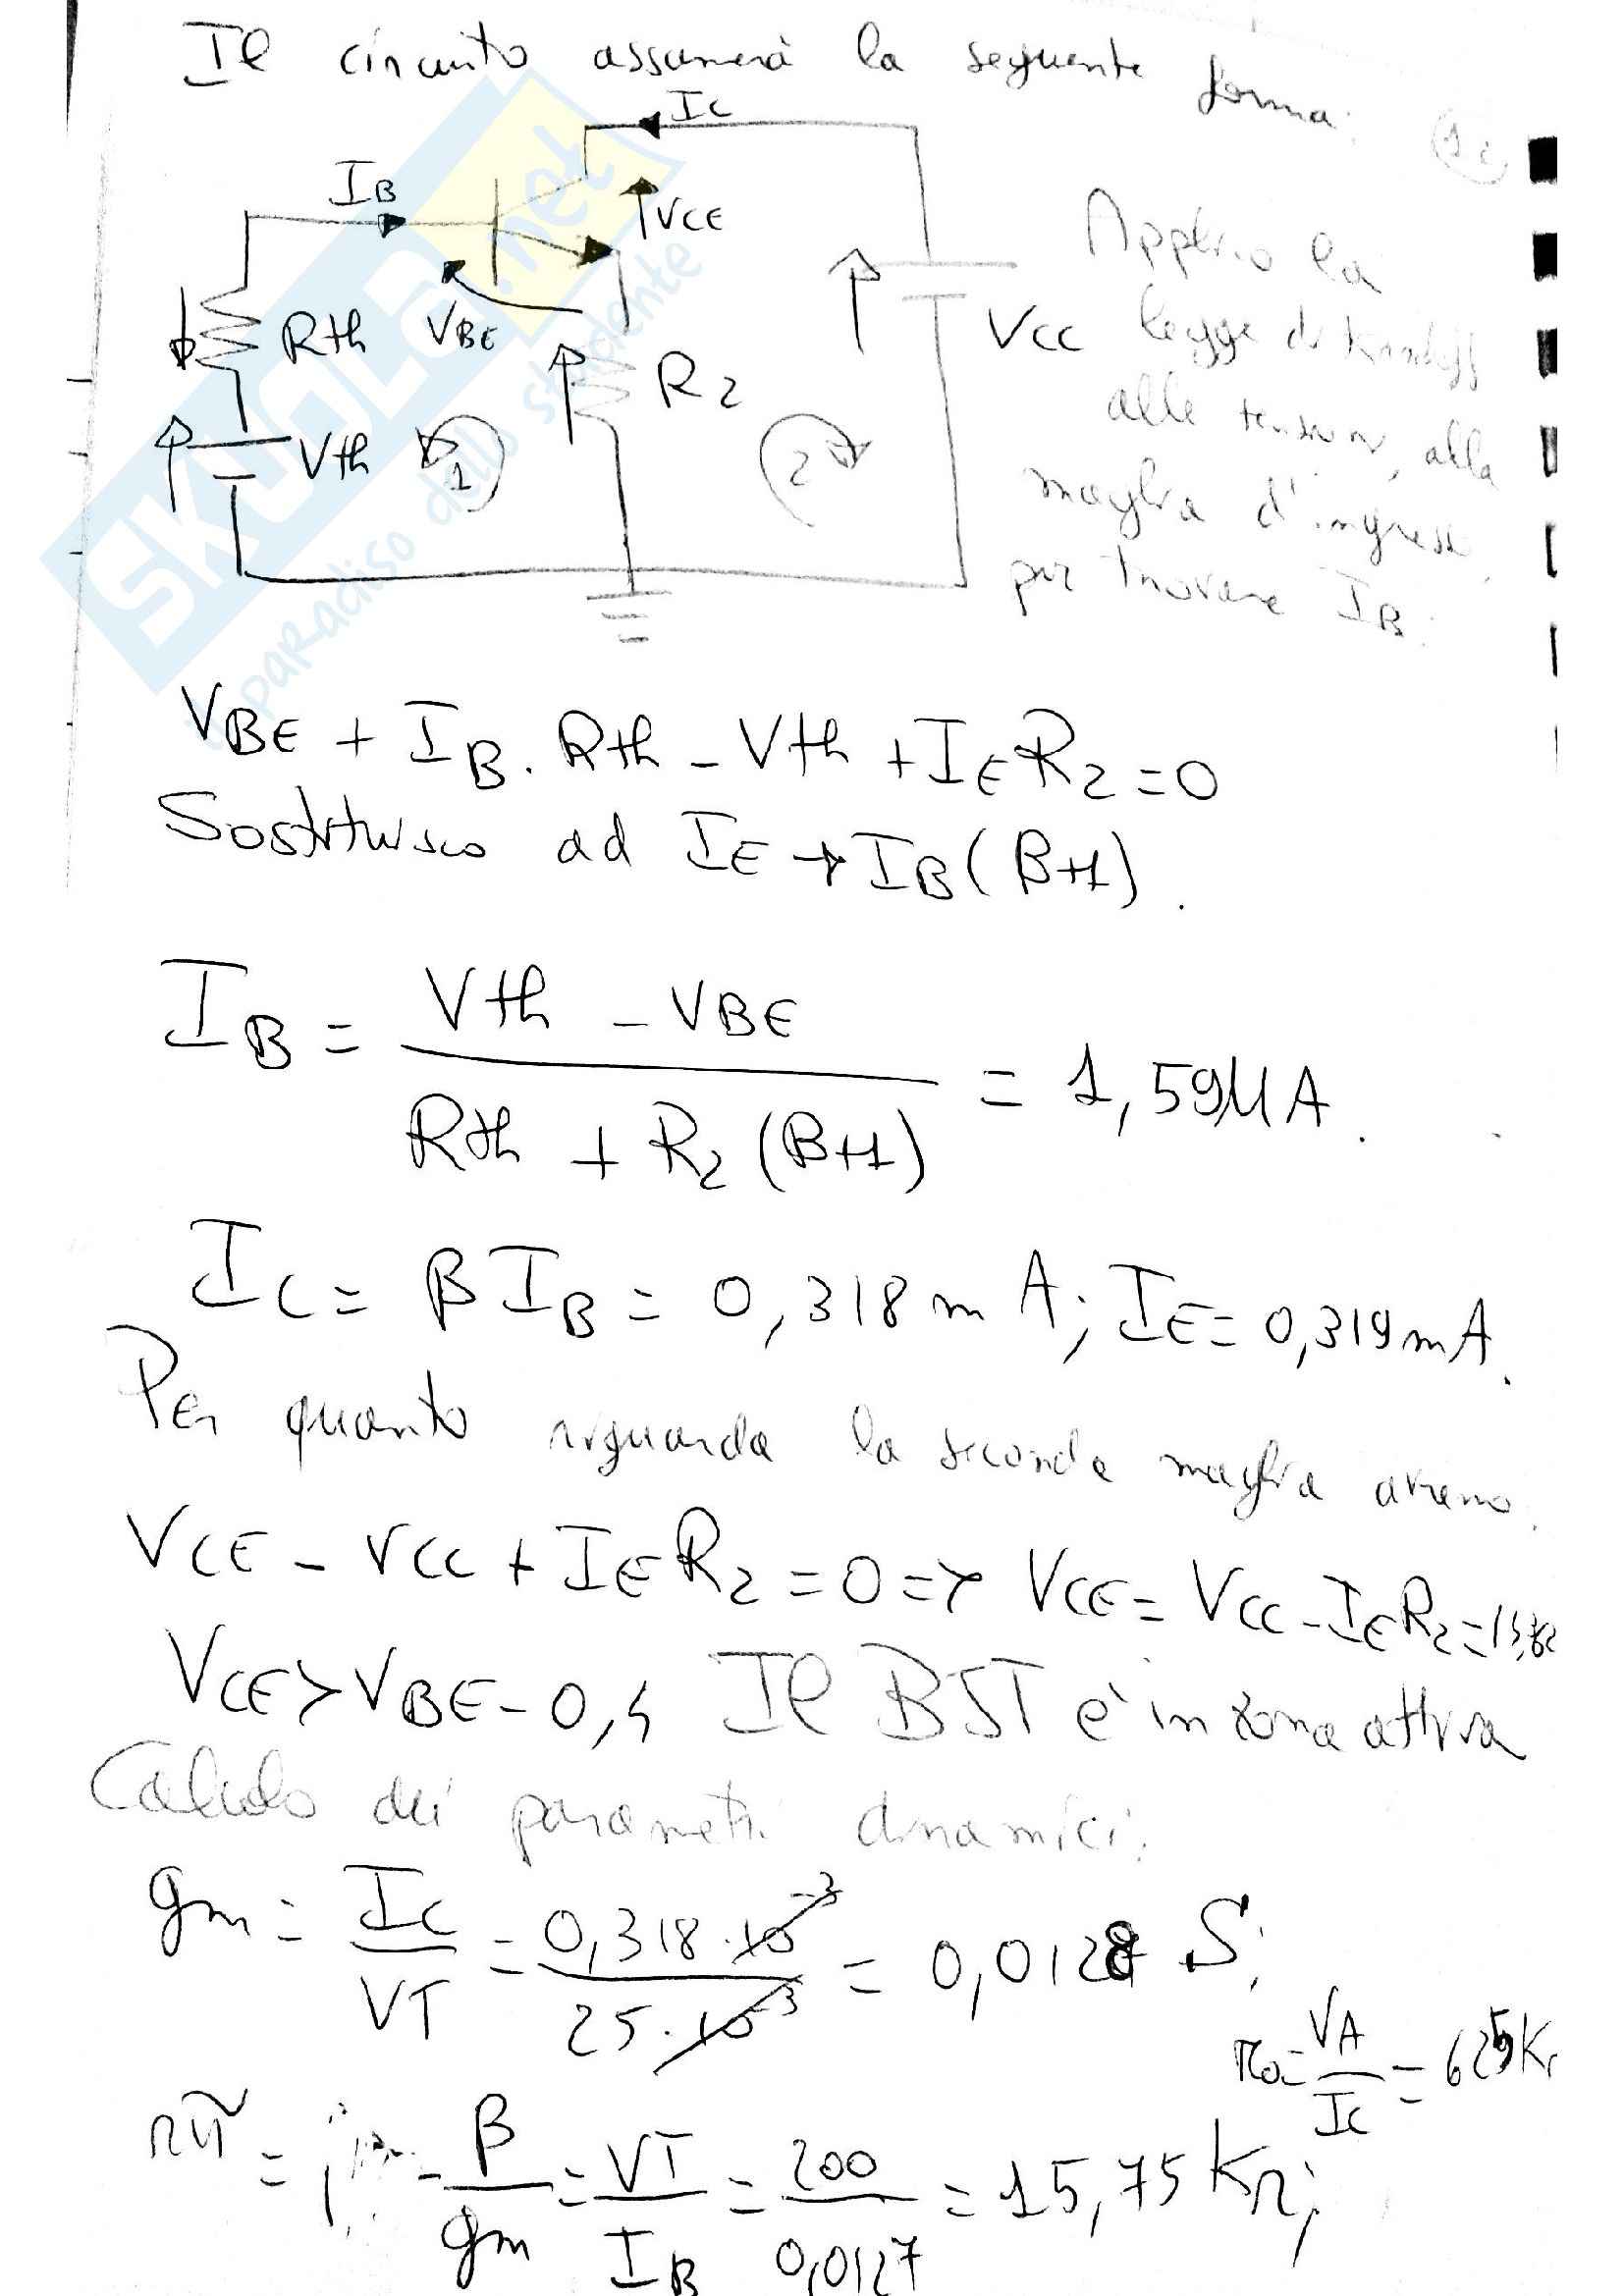 Il circuito assumerà la seguente forma:
1c
IC
IB
VCE
Applico la
Rth
VBE
R2
VCC
legge di Kirchhoff
alle tensioni, alla
Vth
1
2
maglia d'ingresso
per trovare IB.
SKUOLA.net
il paradiso dello studente
VBE + IB · Rth - Vth + IE R2 = 0
Sostituisco ad IE → IB (β+1).
IB = Vth - VBE / Rth + R2 (β+1) = 1,59 μA.
IC = β IB = 0,318 mA; IE = 0,319 mA.
Per quanto riguarda la seconda maglia avremo.
VCE - VCC + IE R2 = 0 => VCE = VCC - IE R2 =
VCE > VBE - 0,4 Il BJT è in zona attiva
Calcolo dei parametri dinamici:
gm = IC / VT = 0,318 · 10^-3 / 25 · 10^-3 = 0,0128 S;
ro = VA / IC = 625 K
rπ = β / gm = VT / IB = 200 / 0,0127 = 15,75 KΩ;